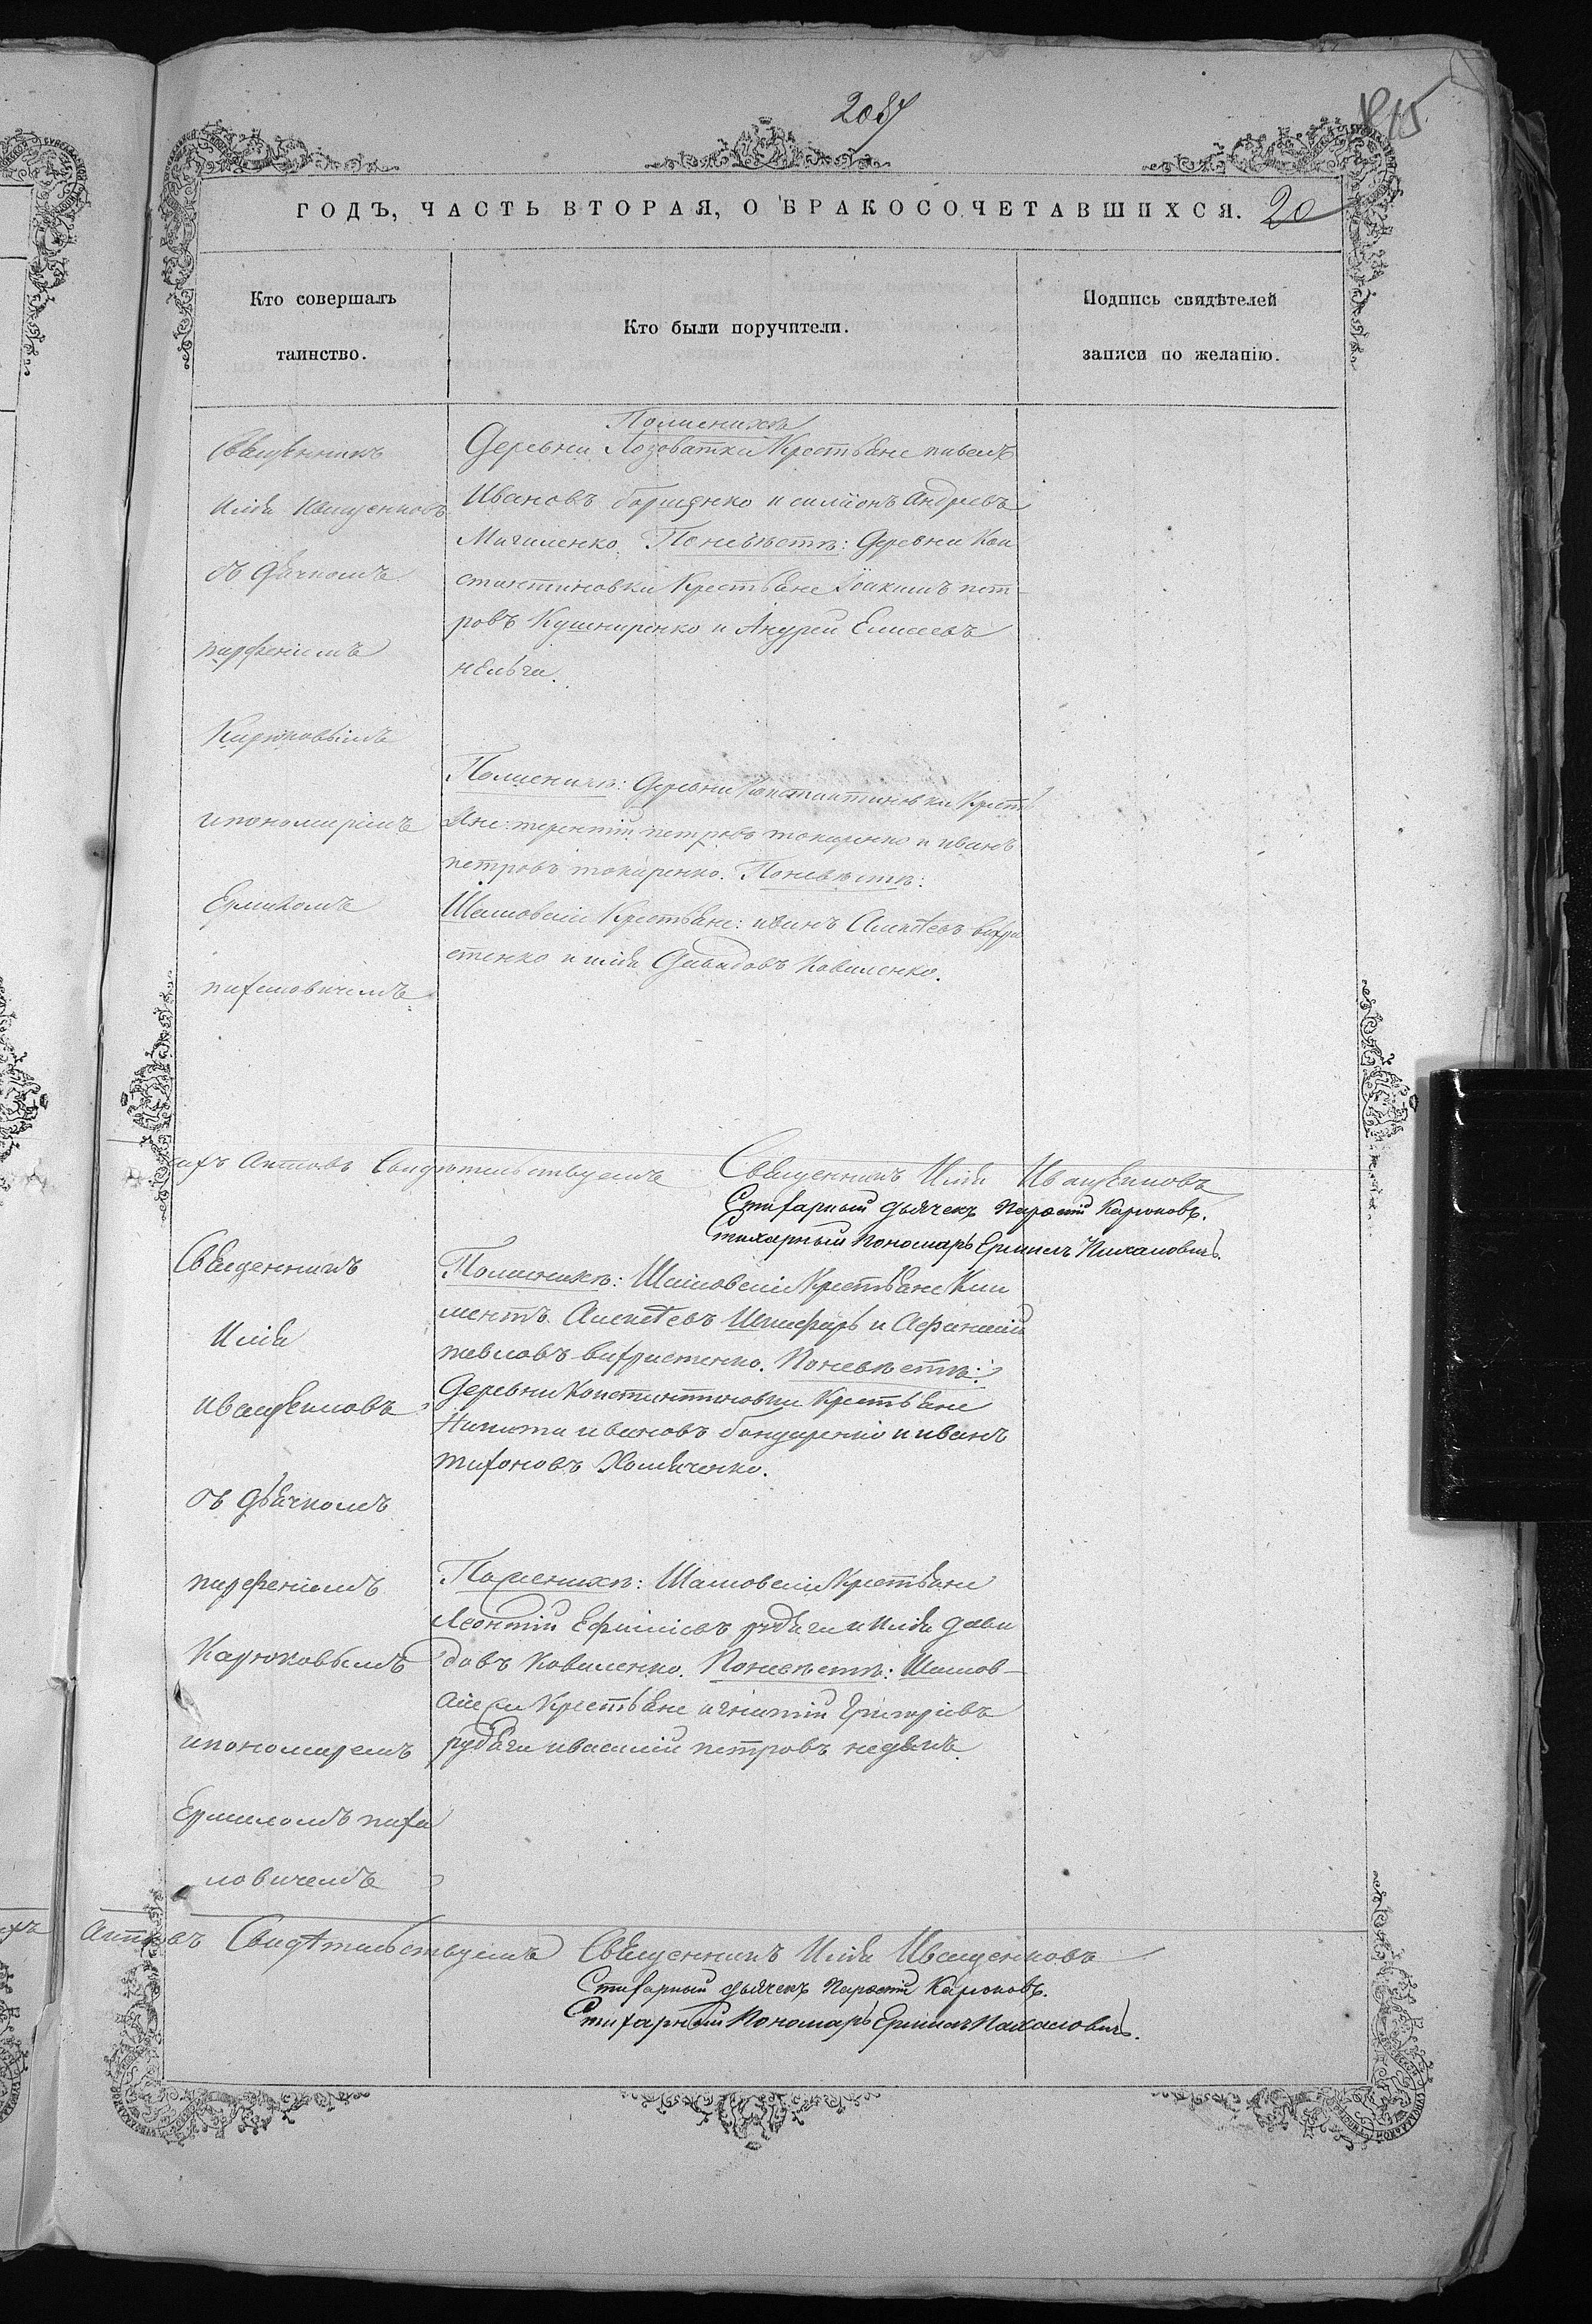 ГОДЪ, ЧАСТЬ ВТОРАЯ, О БРАКОСОЧЕТАВШИХСЯ. 20
Кто совершалъ
таинство.
Кто были поручители.
Подпись свидѣтелей
записи по желанію.
Священникъ
Илія Иващенковъ
съ дьячкомъ
парфеніемъ
Карюковымъ
и пономаремъ
Ермиломъ
пихаловичемъ
По женихѣ
Деревни Лозоватки Крестьяне павелъ
Ивановъ и симіонъ Андреевъ
По невѣстѣ: Деревни Кон
стантиновки Крестьяне Іоакимъ пет-
ровъ Кушниренко и Андрей Елисеевъ
По женихѣ: Деревни Константиновки Кресть
яне: терентій петровъ токаренко и иванъ
петровъ токаренко. По невѣстѣ:
Крестьяне: иванъ Алексѣевъ вахри
стенко и илія Давидовъ Коваленко.
Актовъ Свидѣтельствуемъ Священникъ Илія Иващенковъ
Стихарный дьячекъ Карюковъ.
Стихарный Пономарь Ермилъ Пихаловичъ.
Священникъ
Илія
иващенковъ
съ дьячкомъ
парфеніемъ
Карюковымъ
и пономаремъ
Ермиломъ пиха
ловичемъ
По женихѣ: Крестьяне Кли
ментъ Алексѣевъ и Афанасій
павловъ вахристенко. По невѣстѣ:
Деревни Константиновки Крестьяне
Никита ивановъ бондаренко и иванъ
тихоновъ
По женихѣ: Крестьяне
Леонтій Ефимовъ рудяга и Илія дави
довъ Коваленко. По невѣстѣ:
Крестьяне игнатій Григорьевъ
рудяга и василій петровъ
Актовъ Свидѣтельствуемъ Священникъ Илія Иващенковъ
Стихарный дьячекъ Карюковъ.
Стихарный Пономарь Ермилъ Пихаловичъ.